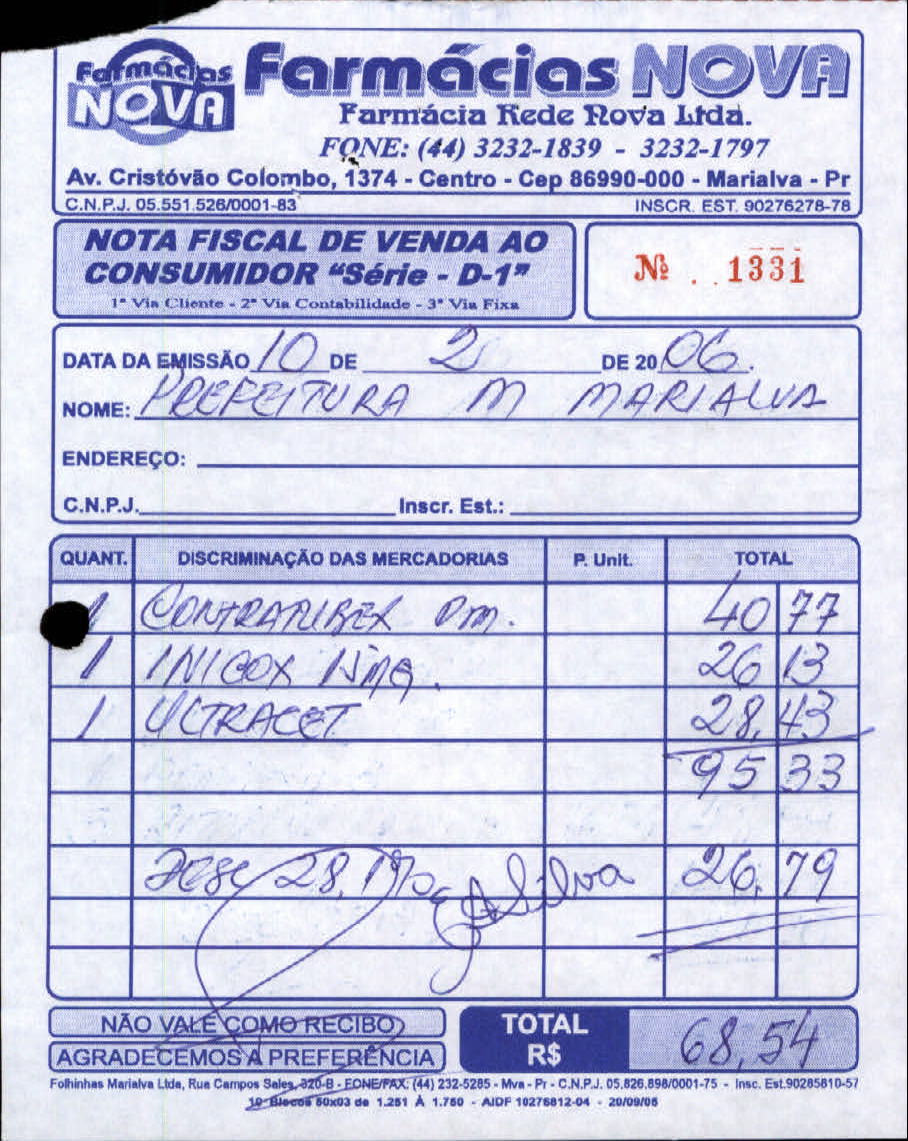 Farmácias NOVA
Farmácias NOVA
Farmácia Rede Nova Ltda.
FONE: (44) 3232-1839 - 3232-1797
Av. Cristóvão Colombo, 1374 - Centro - Cep 86990-000 - Marialva - Pr
C.N.P.J. 05.551.526/0001-83 INSCR. EST. 90276278-78
NOTA FISCAL DE VENDA AO
CONSUMIDOR "Série - D-1"
1ª Via Cliente - 2ª Via Contabilidade - 3ª Via Fixa
Nº 1331
DATA DA EMISSÃO 10 DE 2 DE 20 06.
NOME: PREFEITURA M MARIALVA
ENDEREÇO:
C.N.P.J. Inscr. Est.:
QUANT. DISCRIMINAÇÃO DAS MERCADORIAS P. Unit. TOTAL
1 40 77
1 INICOX 15MG. 26 13
1 ULTRACET 28,43
95 33
Desc 28,1% Silva 26,79
NÃO VALE COMO RECIBO
AGRADECEMOS A PREFERÊNCIA
TOTAL R$ 68,54
Folhinhas Marialva Ltda, Rua Campos Sales, 320-B - FONE/FAX: (44) 232-5285 - Mva - Pr - C.N.P.J. 05.826.898/0001-75 - Insc. Est.90285810-57
10 Blocos 50x03 de 1.251 À 1.750 - AIDF 10276812-04 - 20/09/05